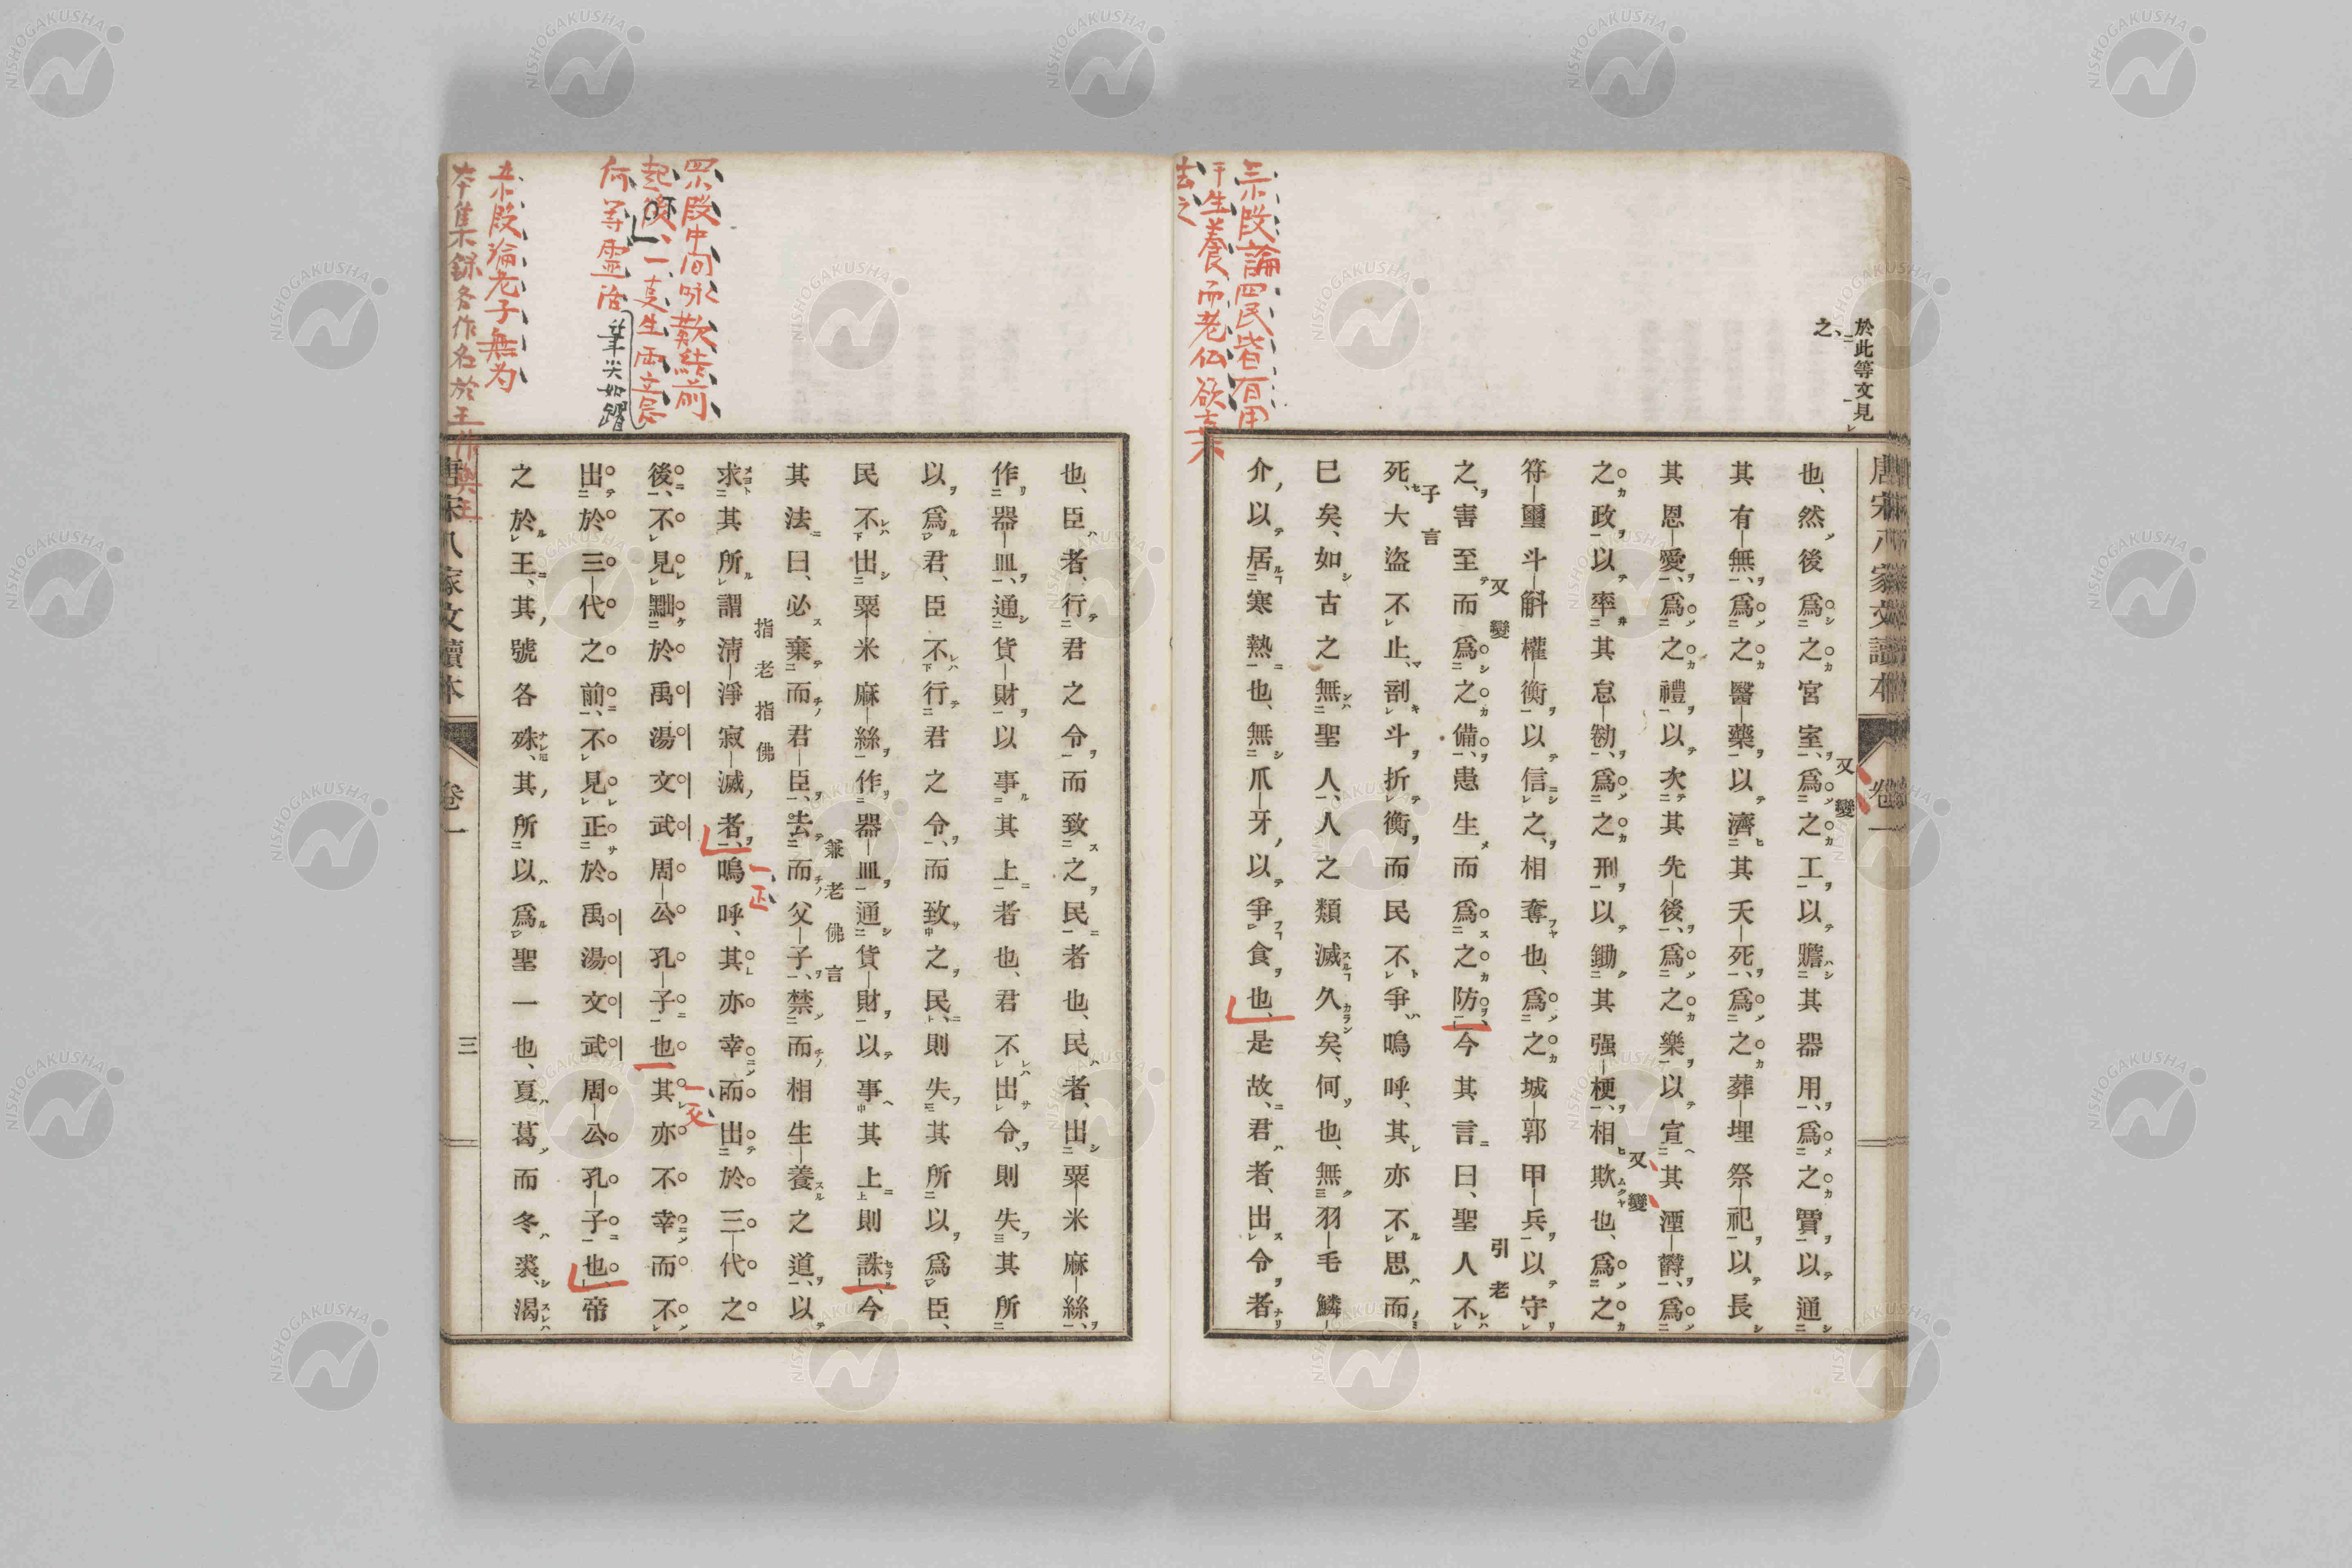 於此等文見
之、
唐宋八家文讀本 卷一
也、然後爲之宮室、爲之工以贍其器用、爲之賈以通
又變
其有無、爲之醫藥以濟其夭死、爲之葬埋祭祀以長
其恩愛、爲之禮以次其先後、爲之樂以宣其湮鬱、爲
又變
之政以率其怠勌、爲之刑以鋤其强梗、相欺也、爲之
符璽斗斛權衡以信之、相奪也、爲之城郭甲兵以守
又變
引老
之、害至而爲之備、患生而爲之防、今其言曰、聖人不
子言
死、大盜不止、剖斗折衡而民不爭、嗚呼、其亦不思而
已矣、如古之無聖人、人之類滅久矣、何也、無羽毛鱗
介以居寒熱也、無爪牙以爭食也、是故、君者、出令者
段論四民皆有用
于生養而老仏欲棄
去之
也、臣者、行君之令而致之民者也、民者、出粟米麻絲、
作器皿、通貨財以事其上者也、君不出令、則失其所
以爲君、臣不行君之令、而致之民、則失其所以爲臣、
民不出粟米麻絲作器皿通貨財以事其上則誅、今
兼老佛言
其法曰、必棄而君臣、去而父子、禁而相生養之道、以
指老指佛
求其所謂淸淨寂滅者、嗚呼、其亦幸而出於三代之
一正
後、不見黜於禹湯文武周公孔子也其亦不幸而不
一反
出於三代之前、不見正於禹湯文武周公孔子也、帝
之於王、其號各殊、其所以爲聖一也、夏葛而冬裘、渴
段中間咏歎結前
起後、一支生兩意
何等靈活
筆尖如躍
段論老子無为
本集録各作名於王作與王
唐宋八家文讀本 卷一 三